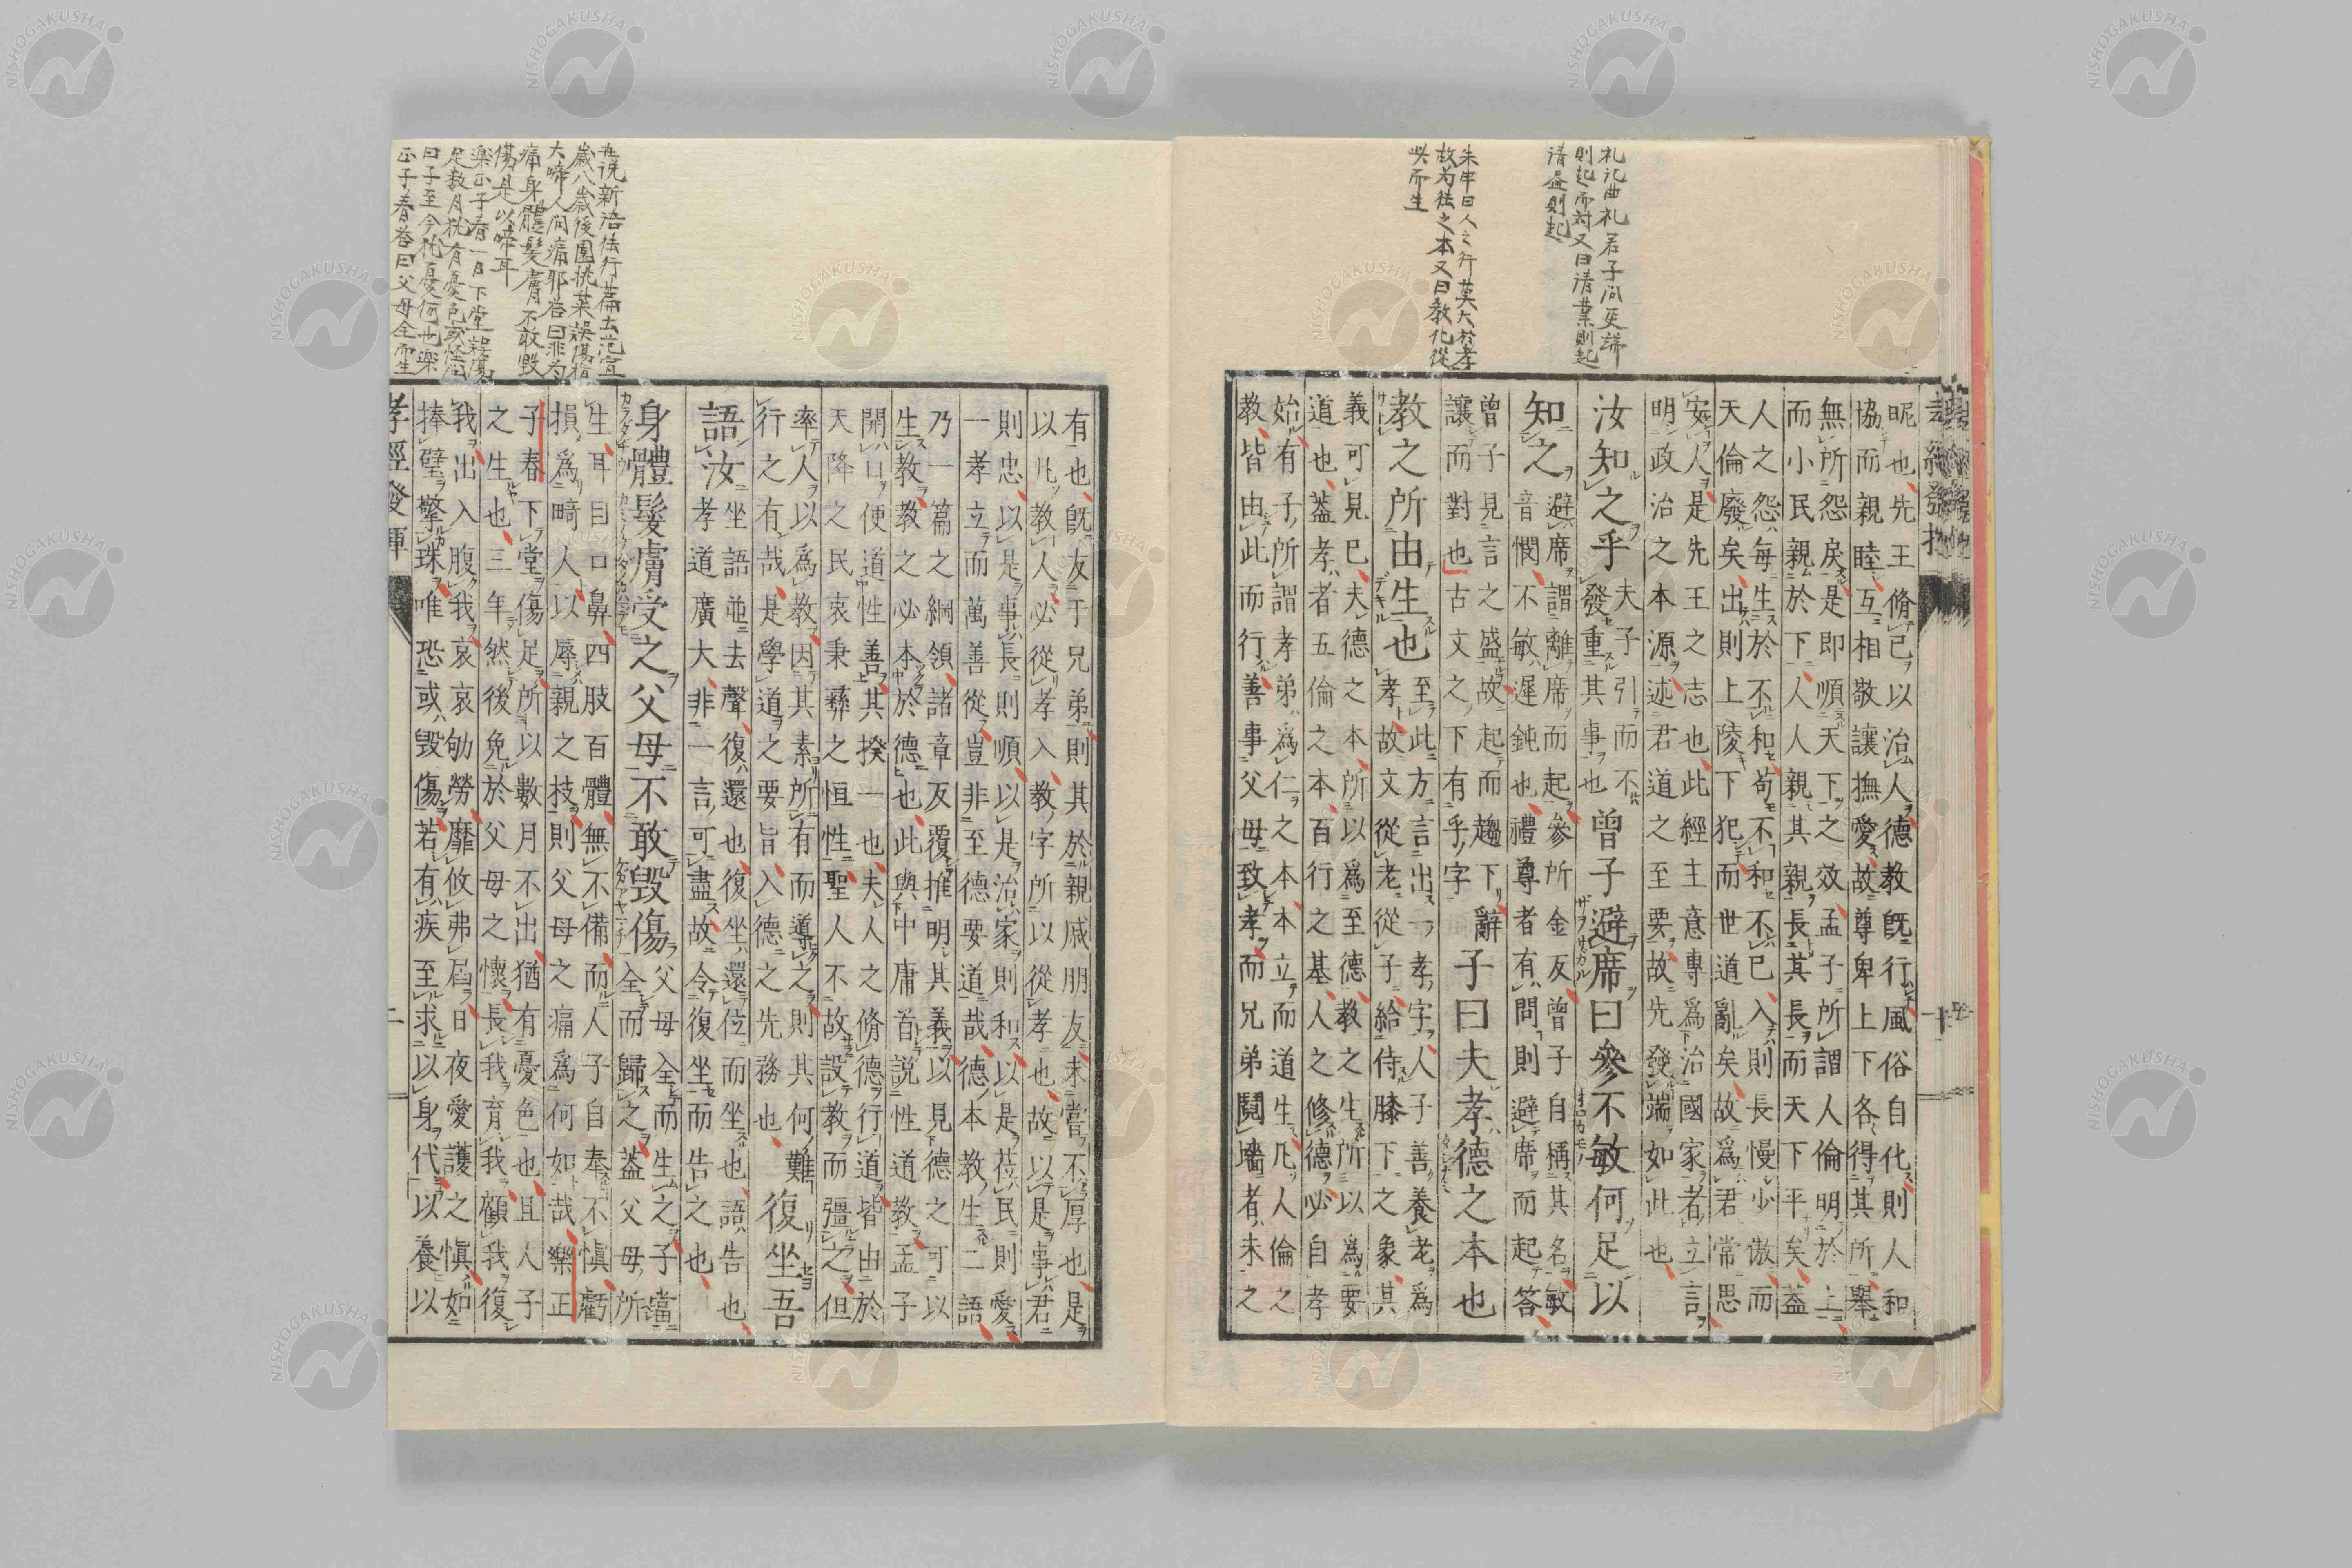 礼記曲礼君子問更端
則起而対又曰请業則起
请益則起
朱申曰人之行莫大於孝
故为徳之本又曰教化從
此而生
昵也先王脩己以治人德教既行風俗自化則人和
協而親睦互相敬讓撫愛故尊卑上下各得其所舉
無所怨戾是即順天下之效孟子所謂人倫明於上
而小民親於下人人親其親長其長而天下平矣蓋
人之怨每生於不和苟不和不已入則長慢少傲而
天倫廢矣出則上陵下犯而世道亂矣故爲君常思
安人是先王之志也此經主意專爲治國家者立言
明政治之本源述君道之至要故先發端如此也
汝知之乎
夫子引而不
發重其事也
曾子避席曰參不敏何足以
知之
避席謂離席而起參所金反曾子自稱其名敏
音憫不敏遲鈍也禮尊者有問則避席而起答
曾子見言之盛故起而趨下辭
讓而對也古文之下有乎字
子曰夫孝德之本也
教之所由生也
至此方言出一孝字人子善養老爲
孝故文從老從子給侍膝下之象其
義可見已夫德之本所以爲至德教之生所以爲要
道也蓋孝者五倫之本百行之基人之修德必自孝
始有子所謂孝弟爲仁之本本立而道生凡人倫之
教皆由此而行善事父母致孝而兄弟鬩墻者未之
世說新語徳行篇云范宣
歲八歲後園挑菜誤傷指
大啼人问痛邪答曰非为
痛身體髮膚不敢毀
傷是以啼耳
樂正子春一日下堂
足数月犹有憂色
曰子至今犹有憂何也樂
正子春答曰父母全而生
有也既友于兄弟則其於親戚朋友未嘗不厚也是
以凡教人必從孝入教字所以從孝也故以是事君
則忠以是事長則順以是治家則和以是莅民則愛
一孝立而萬善從豈非至德要道哉德本教生二語
乃一篇之綱領諸章反覆推明其義以見德之可以
生教教之必本於德也此與中庸首説性道教孟子
開口便道性善其揆一也夫人之脩德行道皆由於
天降之民衷秉彝之恒性聖人不故設教而彊之但
率人以爲教因其素所有而導之則其何難
行之有哉是學道之要旨入德之先務也
復坐吾
語汝
坐語並去聲復還也復坐還位而坐也語告也
孝道廣大非一言可盡故令復坐而告之也
身體髮膚受之父母不敢毀傷
父母全而生之子當
全而歸之蓋父母所
生耳目口鼻四肢百體無不備而人子自奉不愼虧
損爲畸人以辱親之枝則父母之痛爲何如哉樂正
子春下堂傷足所以數月不出猶有憂色也且人子
之生也三年然後免於父母之懷長我育我顧我復
我出入腹我哀哀劬勞靡攸弗屆日夜愛護之愼如
捧璧擎珠唯恐或毀傷若有疾至求以身代以養以
孝經發揮
二
NISHOGAKUSHA